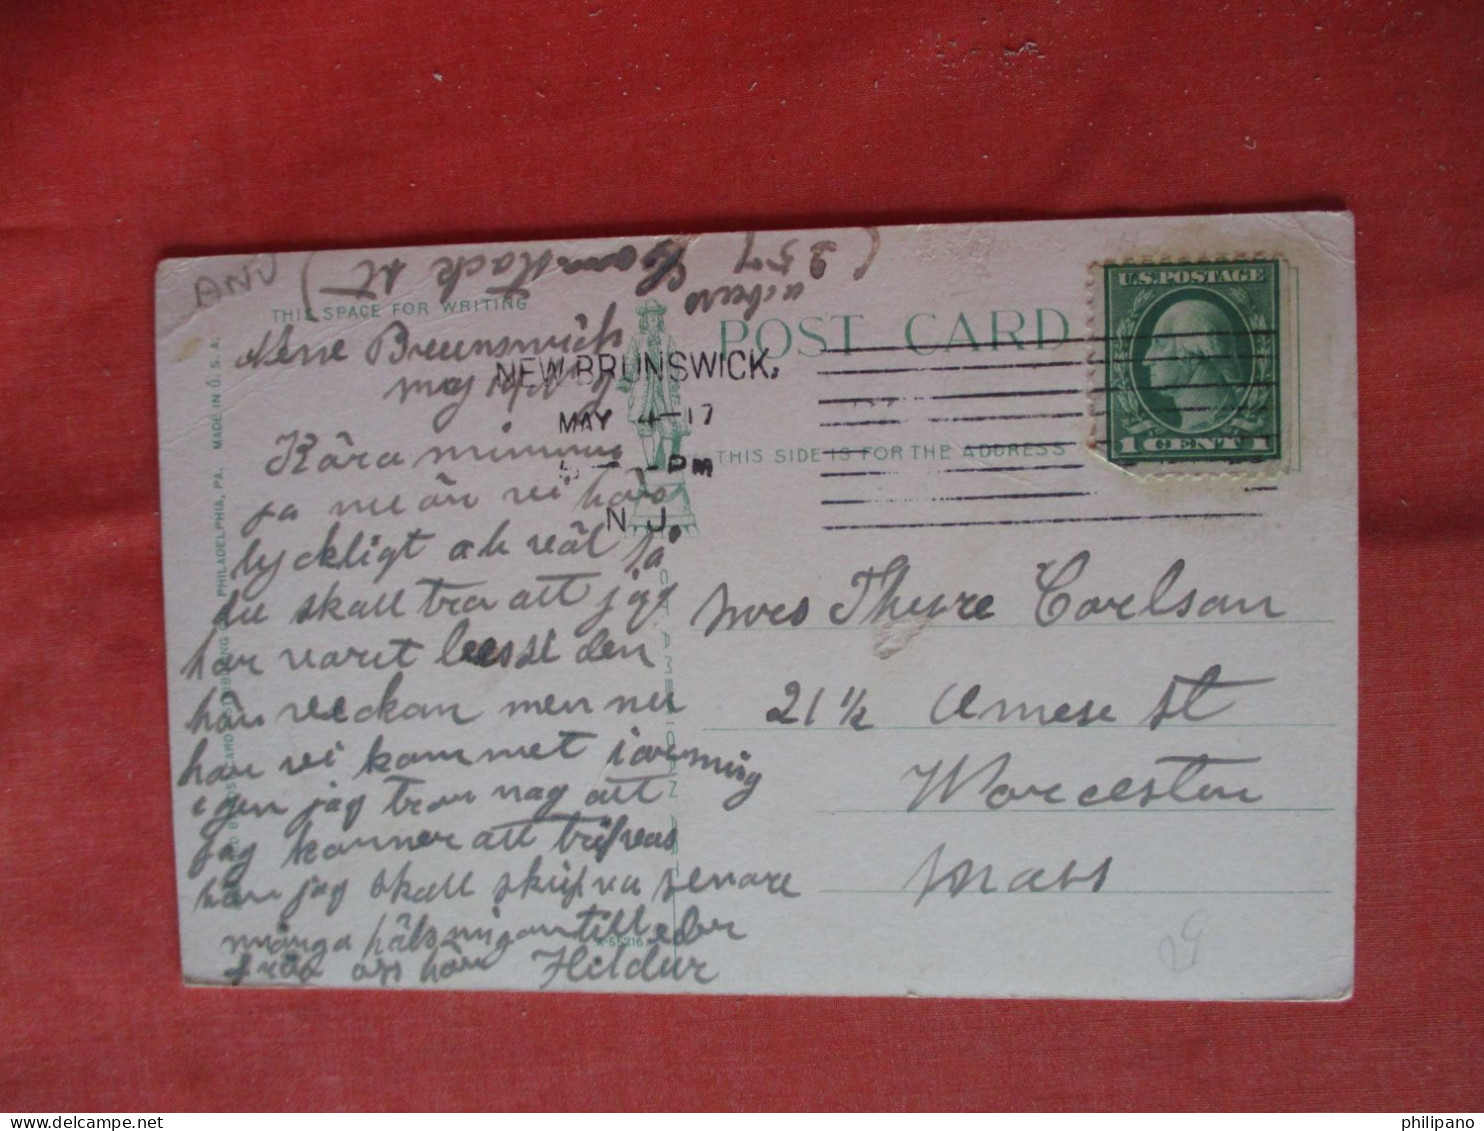 ANV
(257 Comstack st)
THIS SPACE FOR WRITING
POST CARD
U.S. POSTAGE
1 CENT 1
New Brunswich
maj
NEW BRUNSWICK,
MAY 4-17
-PM
N.J.
THIS SIDE IS FOR THE ADDRESS
Kära
ja nu är vi här
lyckligt och väl
du skall tro att jag
har varit leesse den
här veckan men nu
har vi kommet i ordning
igen jag tror nog att
jag kommer att trifvas
här jag skall skrifva senare
många hälsningar till eder
från oss här Hildur
Mrs Thyre Carlson
21 1/2 Ames St
Worcester
Mass
MADE IN U.S.A.
PHILADELPHIA, PA.
A-55216
philipano